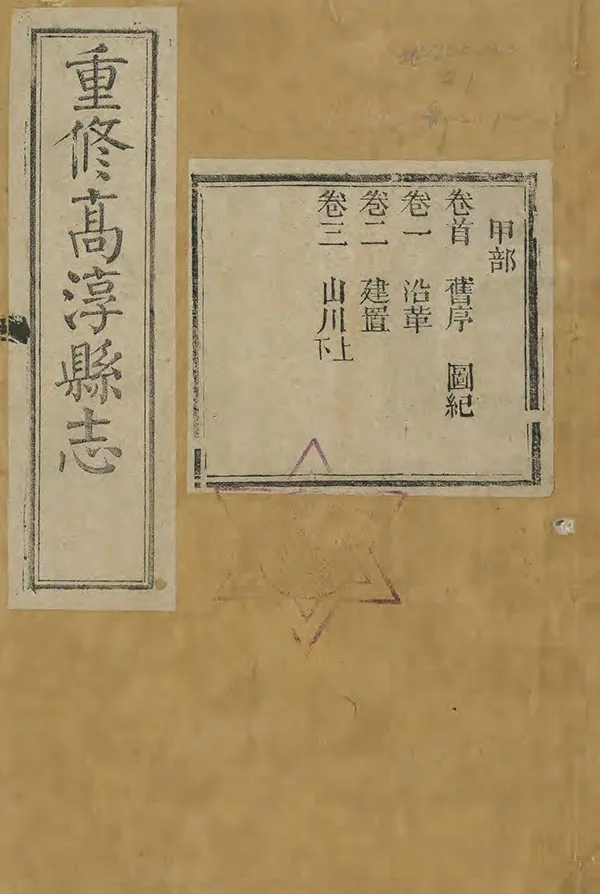 重修高淳縣志
甲部
卷首 舊序 圖紀
卷一 沿革
卷二 建置
卷三 山川上下